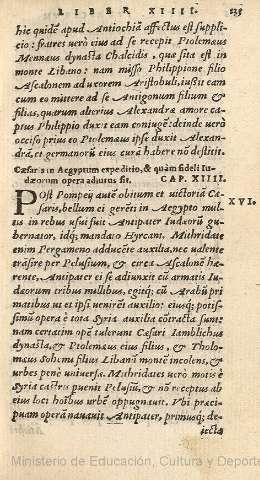 LIBER XIIII. 235
hic quidē apud Antiochiā affectus est suppli-
cio: fratres uerò eius ad se recepit Ptolemæus
Mennæus dynasta Chalcidis, quæ sita est in
monte Libano: nam misso Philippione filio
Ascalonem ad uxorem Aristobuli, iußit eam
cum eo mittere ad se Antigonum filium &
filias, quarum alterius Alexandræ amore ca-
ptus Philippio duxit eam coniugē: deinde uerò
occiso prius eo Ptolemæus ipse duxit Alexan-
drā, et germanorū eius curā habere nō destitit.
Cæsaris in Aegyptum expeditio, & quàm fideli Iu-
dæorum opera adiutus sit. CAP. XIIII.
POst Pompeij autē obitum et uictoriā Cæ-
saris, bellum ei gerēti in Aegypto mul- XVI.
tis in rebus usui fuit Antipater Iudæorū gu-
bernator, idq; mandato Hyrcani. Mithridate
enim Pergameno adducēte auxilia, nec ualente
euadere per Pelusium, & circa Ascalonē hæ-
rente, Antipater ei se adiunxit cū armatis Iu-
dæorum tribus millibus, egitq; cū Arabū pri
matibus ut et ipsi uenirēt auxilio: eiusq; potis-
simū opera è tota Syria auxilia cōtracta sunt:
nam certatim opē tulerunt Cæsari Iamblichus
dynasta, & Ptolemæus eius filius, & Tholo-
mæus Sohemi filius Libanū montē incolens, &
urbes penè uniuersæ. Mithridates uerò motis è
Syria castris puenit Pelusiū, & nō receptus ab
eius loci hoībus urbē oppugnauit. Vbi præci-
puam operā nauauit Antipater, primusq; de-
iecta
Ministerio de Educación, Cultura y Deporte